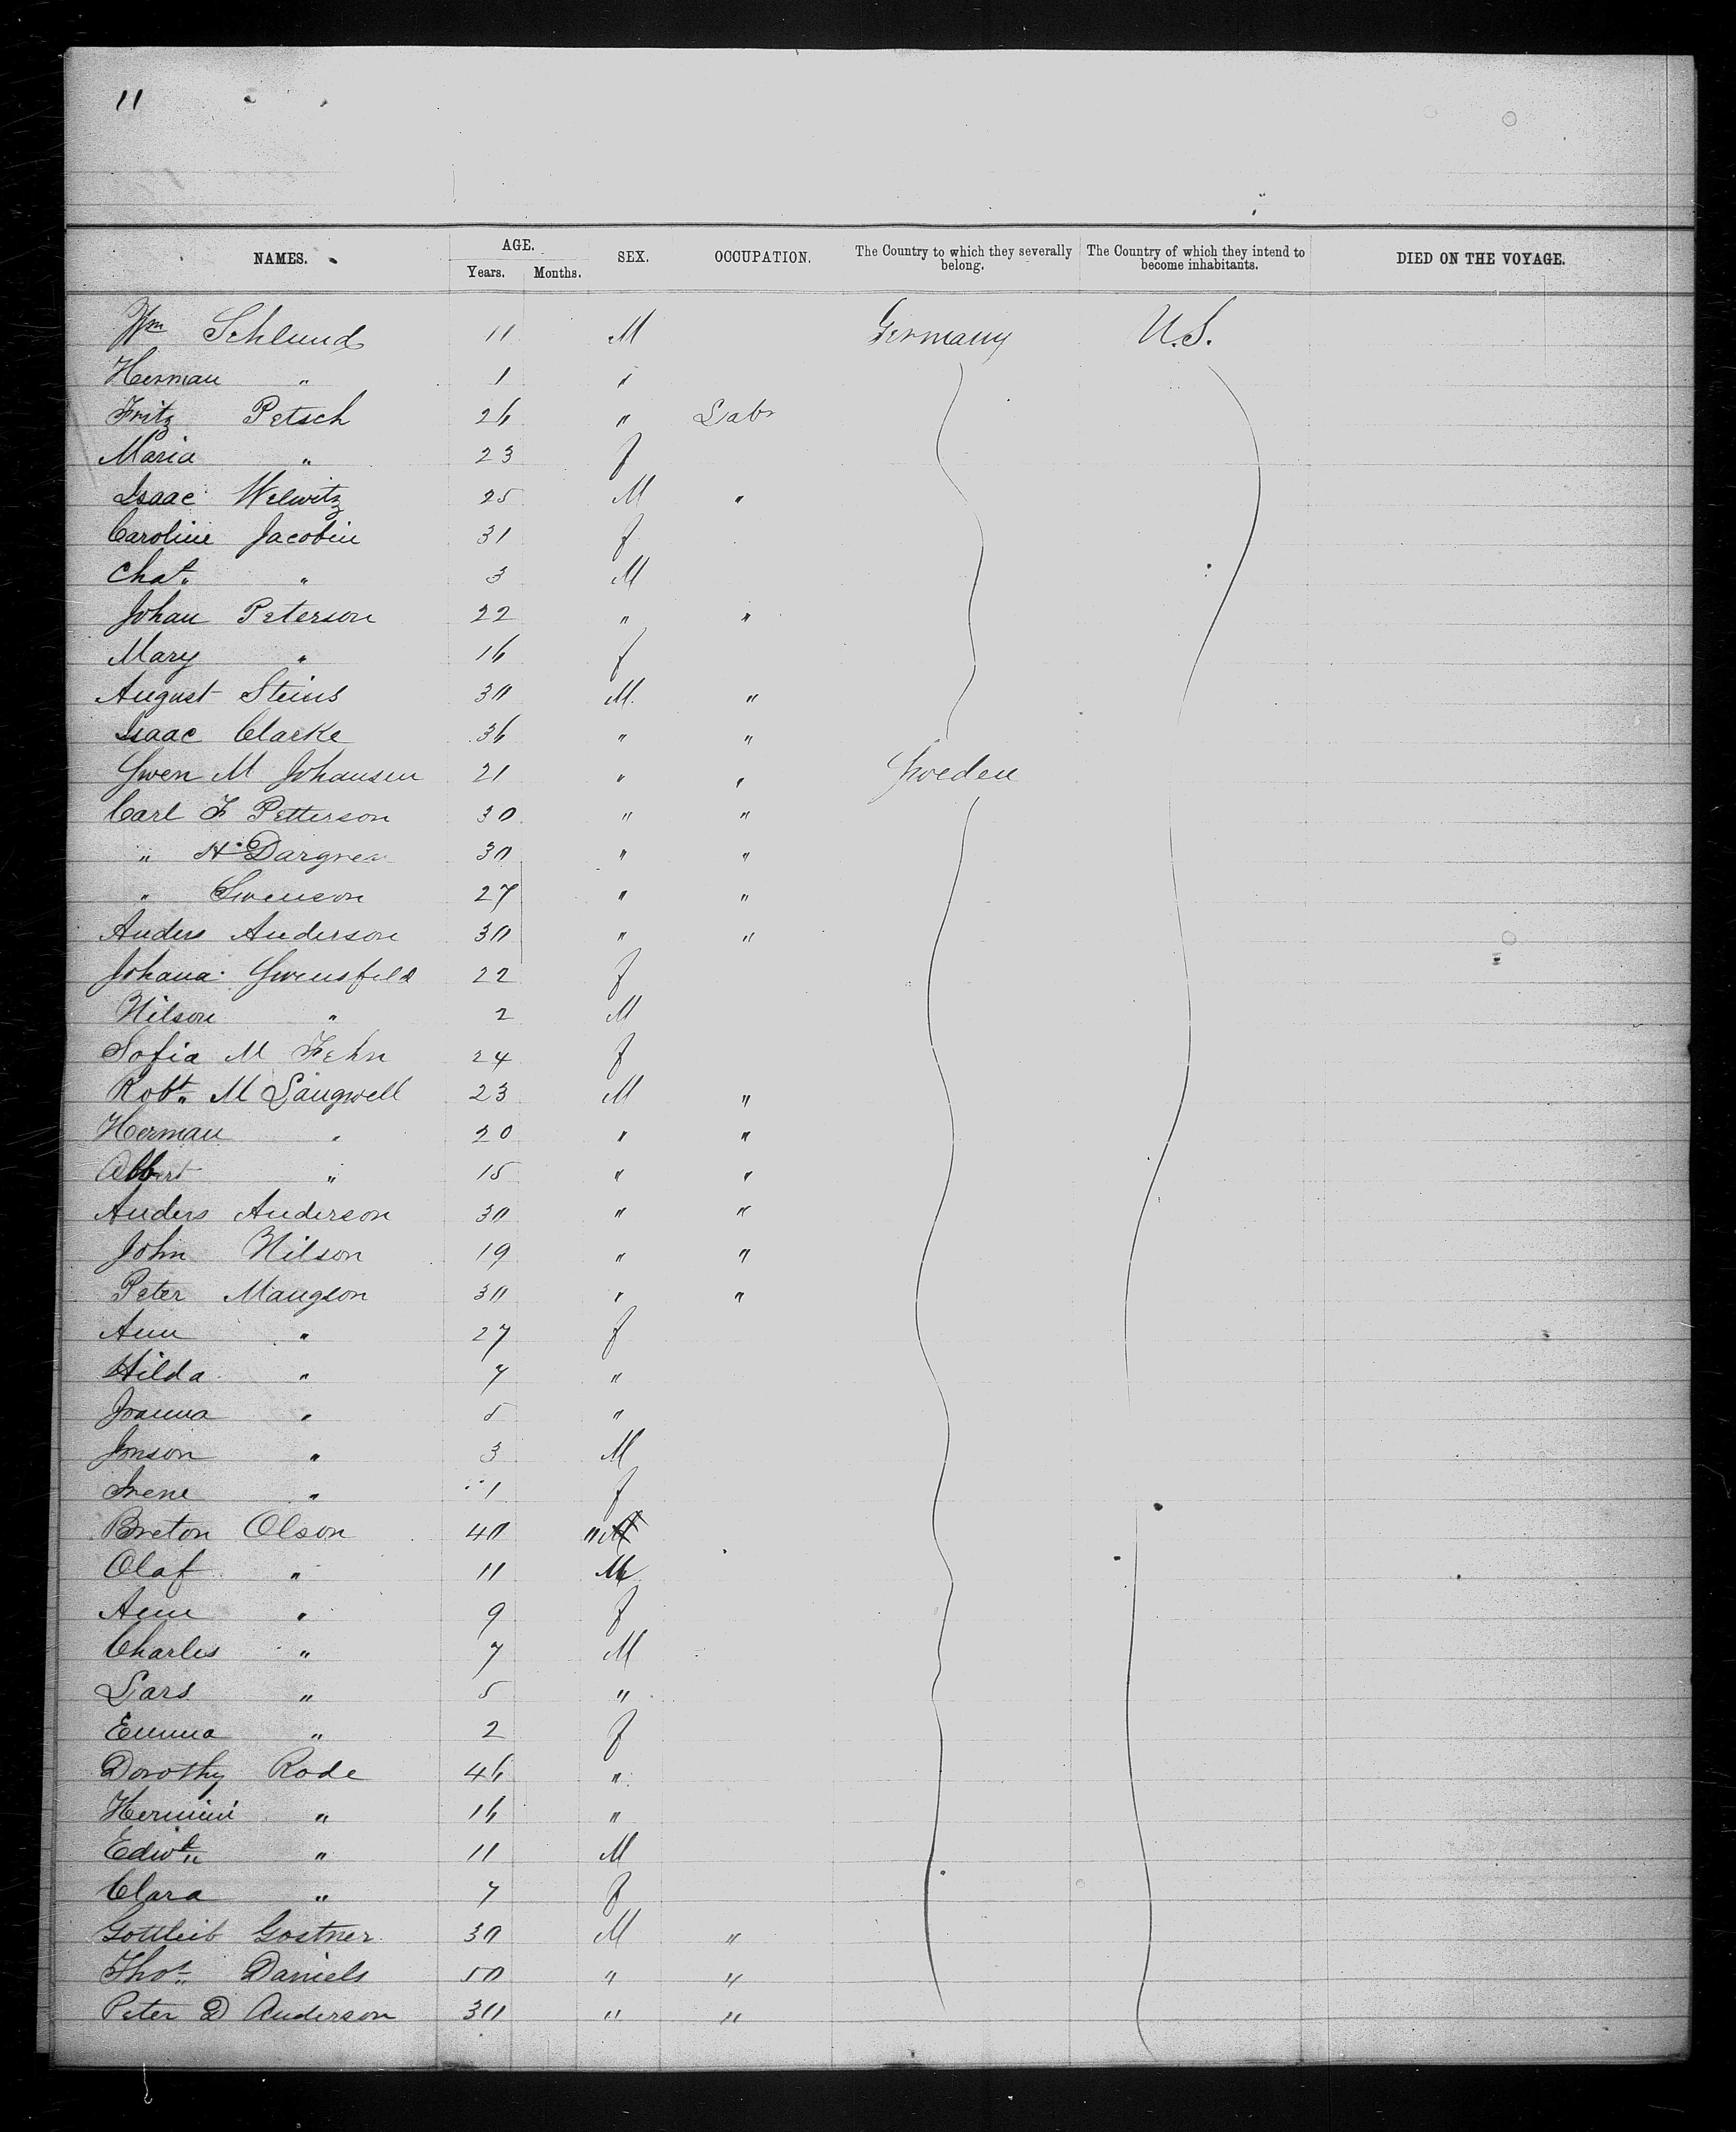 11
NAMES. AGE. Years. Months. SEX. OCCUPATION. The Country to which they severally belong. The Country of which they intend to become inhabitants. DIED ON THE VOYAGE.
Wm Schlund 11 M Germany U.S.
Herman " 1 "
Fritz Petsch 26 " Labr
Maria " 23 f
Isaac Welwitz 25 M "
Caroline Jacobin 31 f
Chas. " 3 M
Johan Peterson 22 " "
Mary " 16 f
August Steins 30 M. "
Isaac Clarke 36 " "
Swen M Johansen 21 " " Sweden
Carl F Petterson 30 " "
" H. 30 " "
" Swenson 27 " "
Anders Anderson 30 " "
Johana Swensfeld 22 f
Nilson " 2 M
Sofia M Fehn 24 f
Robt. M Langwell 23 M "
Herman " 20 " "
Albert " 15 " "
Anders Anderson 30 " "
John Nilson 19 " "
Peter Mangson 30 " "
Ann " 27 f
Hilda " 7 "
Joanna " 5 "
Jonson " 3 M
Irene " 1 f
Breton Olson 40 "
Olaf " 11 M
Ann " 9 f
Charles " 7 M
Lars " 5 "
Emma " 2 f
Dorothy Rode 46 "
Hermini " 16 "
Edwd " 11 M
Clara " 7 f
Gottleib Gostner 30 M "
Thos. Daniels 50 " "
Peter D Anderson 30 " "